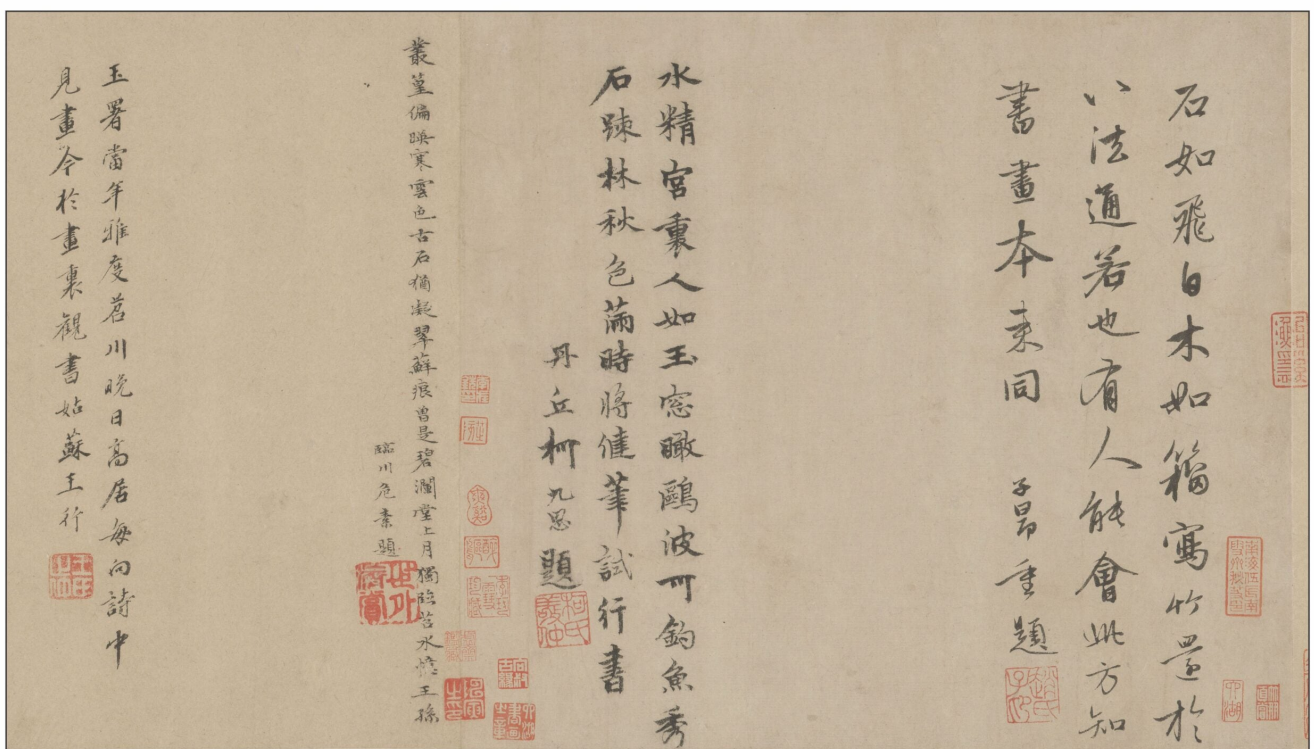 石如飛白木如籀寫竹還於
八法通若也有人能會此方知
書畫本來同　子昂重題
水精宮裏人如玉窓瞰鷗波可釣魚秀
石踈林秋色滿時將健筆試行書
丹丘柯九思題
叢篁偏暎寒雲色古石猶凝翠蘚痕曾是碧瀾堂上月獨臨苕水憶王孫
臨川危素題
玉署當年雅度苕川晚日高居每向詩中
見畫今於畫裏觀書姑蘇王行